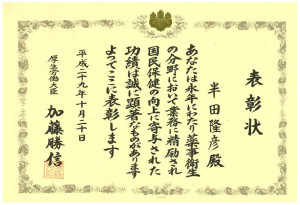 表彰状
半田隆彦殿
あなたは永年にわたり薬事衛生
の分野において業務に精励され
国民保健の向上に寄与された
功績は誠に顕著なものがあります
よってここに表彰します
平成二十九年十月二十日
厚生労働大臣
加藤勝信